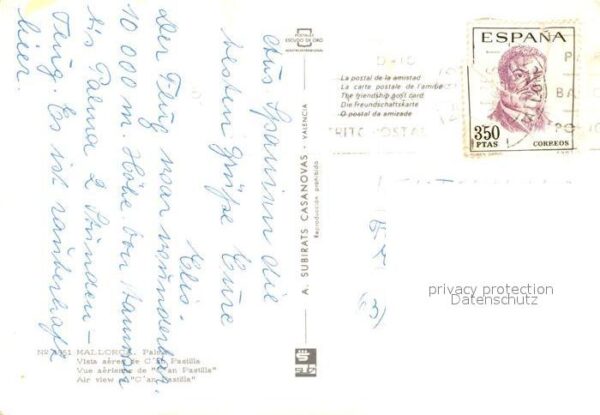 Aus Spanien die
besten Grüße Eure
Elis.
Der Flug war wunderbar.
10 000 m. Höhe. von Hannover
bis Palma 2 Stunden –
Flug. Es ist zauberhaft
hier.
POSTALES
ESCUDO DE ORO
La postal de la amistad
La carte postale de l'amitié
The friendship post card
Die Freundschaftskarte
O postal da amizade
A. SUBIRATS CASANOVAS - VALENCIA
Reproducción prohibida
ESPAÑA
350
PTAS
CORREOS
DISTRITO POSTAL
privacy protection
Datenschutz
MALLORCA. Palma
Vista aérea de C'an Pastilla
Vue aérienne de "C'an Pastilla"
Air view of "C'an Pastilla"